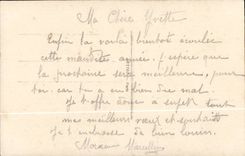 Ma Chère Yvette
Enfin la voilà bientôt écoulée
cette maudite année, j'espère que
la prochaine sera meilleure, pour
toi. car tu a eu bien du mal.
Je t'offre donc a sujet tout
mes meilleurs vœux et souhaits
Je t'embrasse de bien loin.
Marcelle